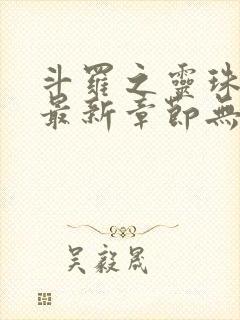 斗羅之靈珠
最新章節無
吳毅晟